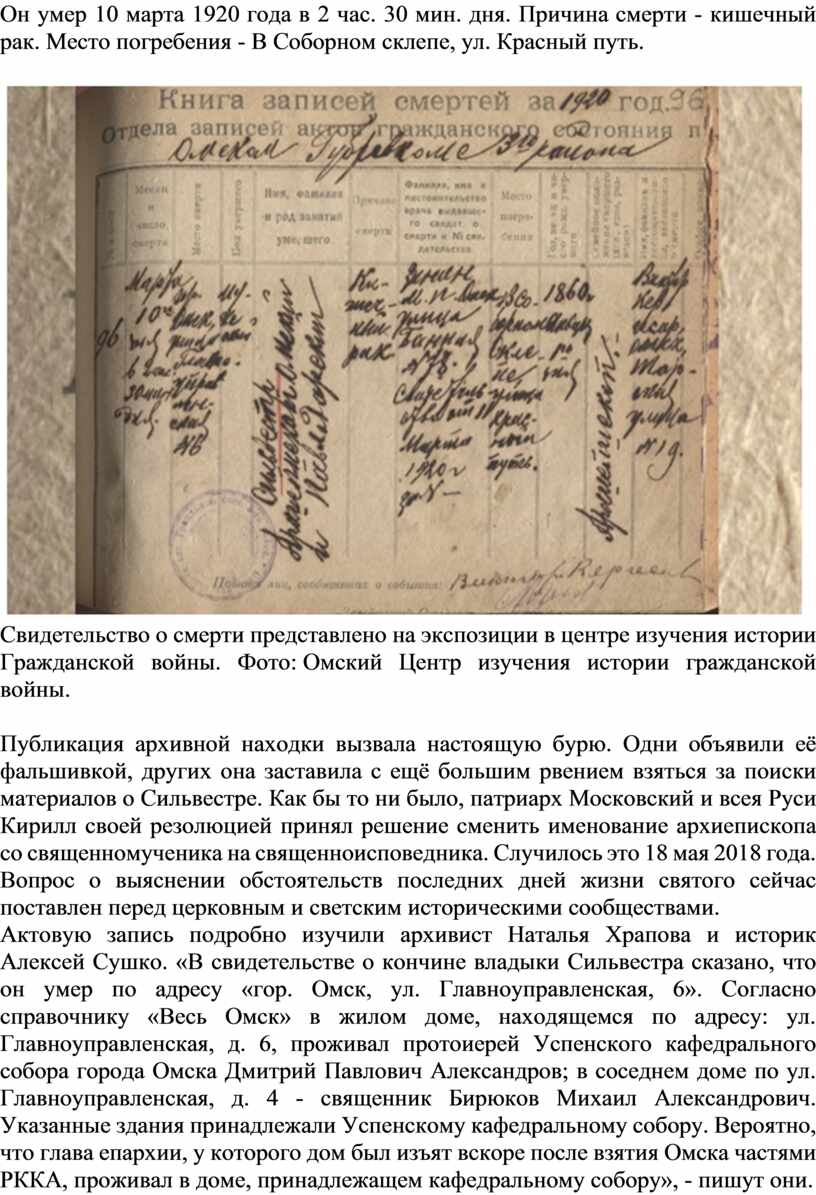 Он умер 10 марта 1920 года в 2 час. 30 мин. дня. Причина смерти - кишечный
рак. Место погребения - В Соборном склепе, ул. Красный путь.
Книга записей смертей за 1920 год. 96
Отдела записей актов гражданского состояния п
Омском Губревкоме 3го района
Месяц и число смерти
Место смерти
Пол умершего
Имя, фамилия и род занятий умершего
Причина смерти
Фамилия, имя и местожительство врача выдавшего свидет. о смерти и № свидетельства
Место погребения
96
Марта 10го дня в 2 час. 30 мин. дня.
гор. Омск, Главноуправленская №6
Сильвестр Архиепископ Омский и Павлодарский
Кишечный рак
М. П. Омск улица Банная
Марта 1920 г за № —
В Соборном склепе улица Красный путь.
1860г
улица № 19.
Подпись лиц, сообщивших о событии:
Свидетельство о смерти представлено на экспозиции в центре изучения истории
Гражданской войны. Фото: Омский Центр изучения истории гражданской
войны.
Публикация архивной находки вызвала настоящую бурю. Одни объявили её
фальшивкой, других она заставила с ещё большим рвением взяться за поиски
материалов о Сильвестре. Как бы то ни было, патриарх Московский и всея Руси
Кирилл своей резолюцией принял решение сменить именование архиепископа
со священномученика на священноисповедника. Случилось это 18 мая 2018 года.
Вопрос о выяснении обстоятельств последних дней жизни святого сейчас
поставлен перед церковным и светским историческими сообществами.
Актовую запись подробно изучили архивист Наталья Храпова и историк
Алексей Сушко. «В свидетельстве о кончине владыки Сильвестра сказано, что
он умер по адресу «гор. Омск, ул. Главноуправленская, 6». Согласно
справочнику «Весь Омск» в жилом доме, находящемся по адресу: ул.
Главноуправленская, д. 6, проживал протоиерей Успенского кафедрального
собора города Омска Дмитрий Павлович Александров; в соседнем доме по ул.
Главноуправленская, д. 4 - священник Бирюков Михаил Александрович.
Указанные здания принадлежали Успенскому кафедральному собору. Вероятно,
что глава епархии, у которого дом был изъят вскоре после взятия Омска частями
РККА, проживал в доме, принадлежащем кафедральному собору», - пишут они.